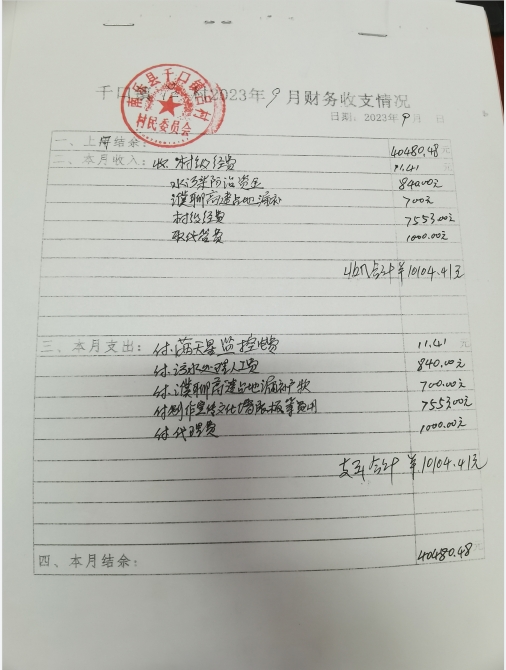 千口镇 村2023年9月财务收支情况
南乐县千口镇 村
村民委员会
日期:2023年9月 日
一、上月结余: 40480.48元
二、本月收入:收 村级经费 11.41元
水污染防治资金 840.00元
濮聊高速占地漏补 700元
村级经费 7553.00元
取代管费 1000.00元
收入合计¥10104.41元
三、本月支出:付.满天星监控电费 11.41元
付.污水处理人工费 840.00元
付.濮聊高速占地漏补 款 700.00元
付制作宣传文化墙版板等费用 7553.00元
付代理费 1000.00元
支出合计 ¥10104.41元
四、本月结余: 40480.48元